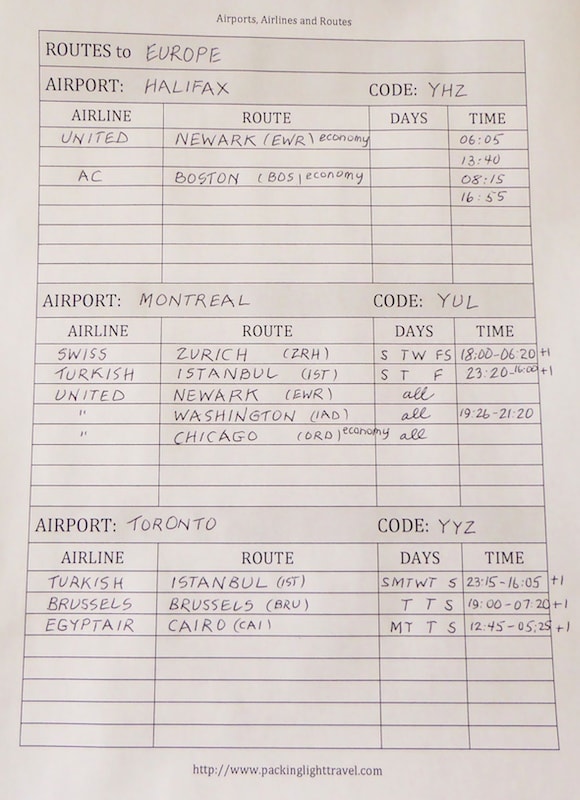 Airports, Airlines and Routes
ROUTES to EUROPE
AIRPORT: HALIFAX CODE: YHZ
AIRLINE ROUTE DAYS TIME
UNITED NEWARK (EWR) economy 06:05
13:40
AC BOSTON (BOS) economy 08:15
16:55
AIRPORT: MONTREAL CODE: YUL
AIRLINE ROUTE DAYS TIME
SWISS ZURICH (ZRH) S TW FS 18:00-06:20 +1
TURKISH ISTANBUL (IST) S T F 23:20-16:00 +1
UNITED NEWARK (EWR) all
" WASHINGTON (IAD) all 19:26-21:20
" CHICAGO (ORD) economy all
AIRPORT: TORONTO CODE: YYZ
AIRLINE ROUTE DAYS TIME
TURKISH ISTANBUL (IST) SMTWT S 23:15-16:05 +1
BRUSSELS BRUSSELS (BRU) T T S 19:00-07:20 +1
EGYPTAIR CAIRO (CAI) MT T S 12:45-05:25 +1
http://www.packinglighttravel.com